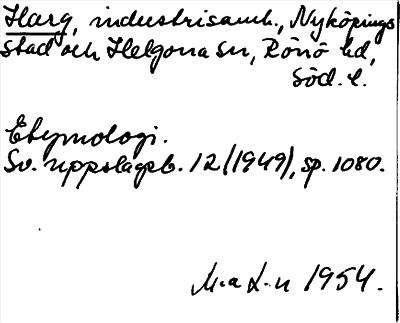 Harg, industrisamh., Nyköpings
stad och Helgona sn, Rönö hd,
Söd. l.
Etymologi.
Sv. uppslagsb. 12 (1949), sp. 1080.
1954.